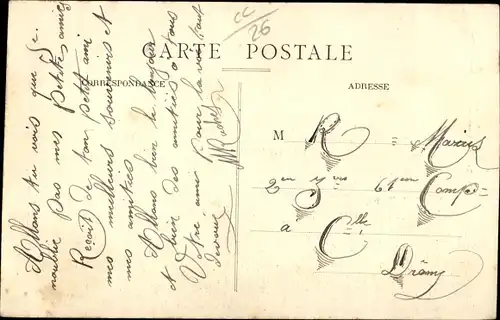 CC
26
CARTE POSTALE
CORRESPONDANCE
ADRESSE
Allons tu vois que je
noublie pas mes petites amies
Reçoit de ton petit ami
mes meilleurs souvenirs et
mes amitiés
Allons bien le bonjour
et bien des amitiés a tous
Votre ami pour la vie tout
devoué
M R = Marius
2en 61en Comp=
a Clle
Drôme